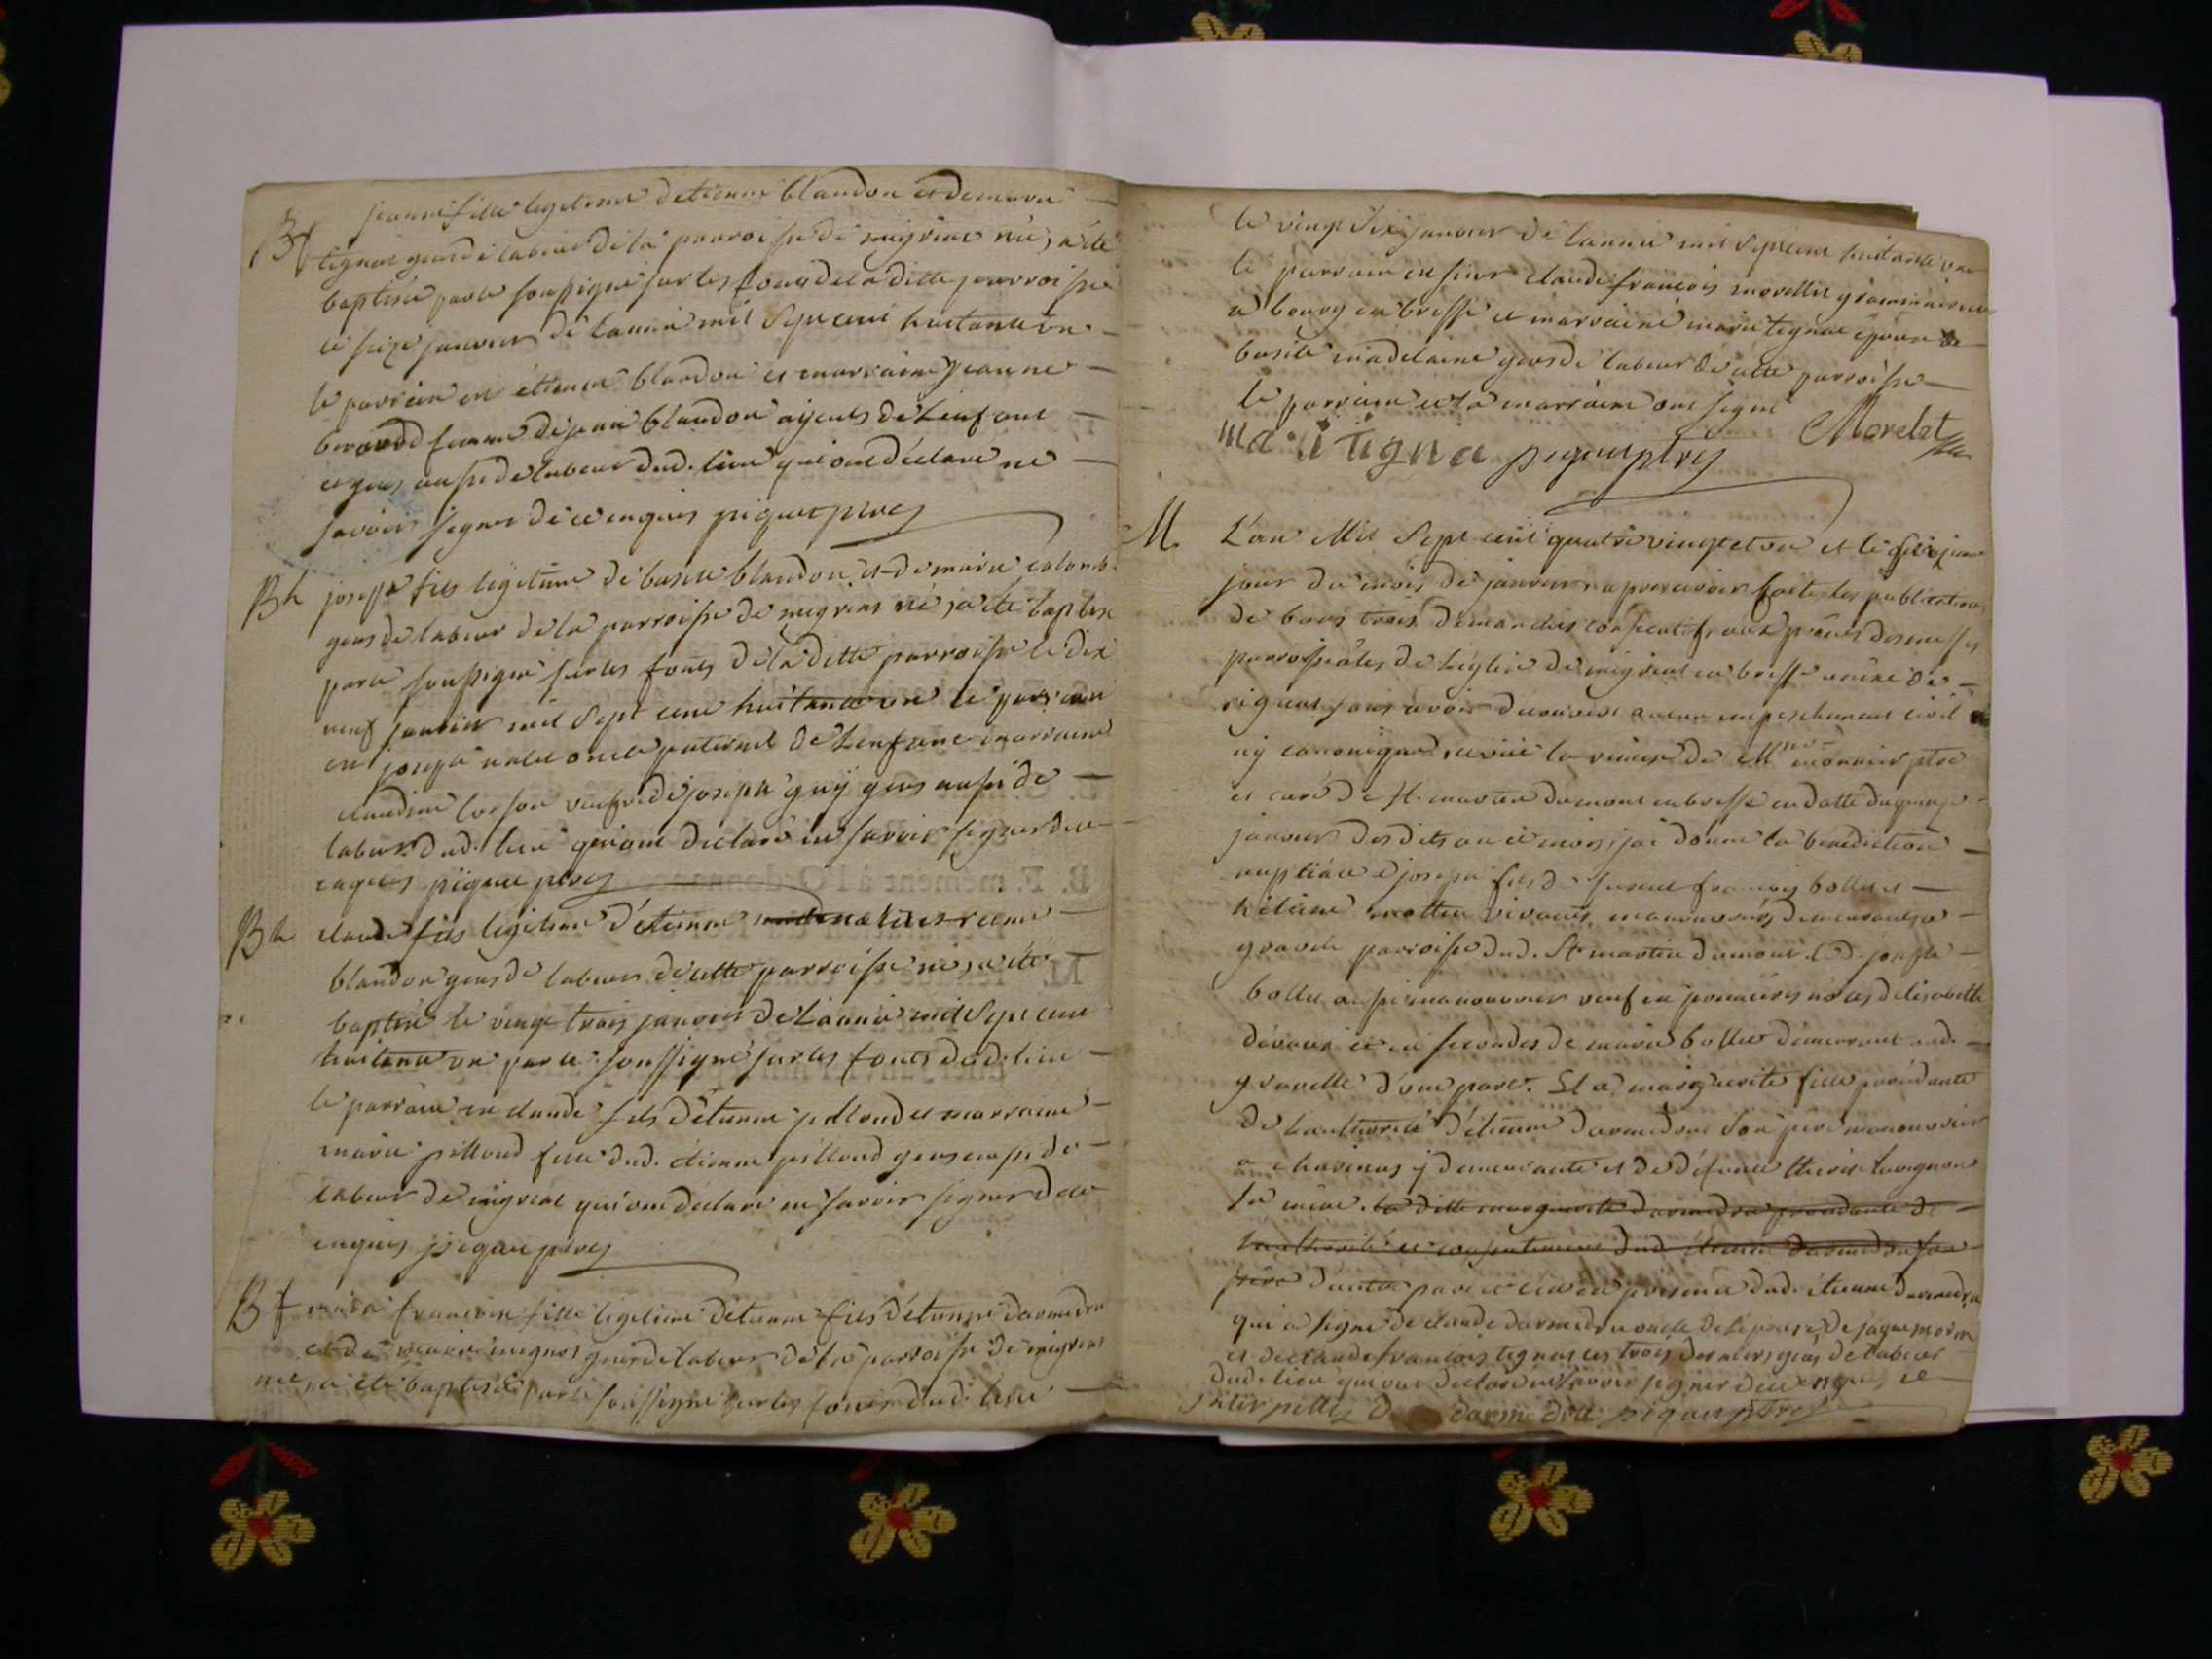 Bf
jeanne fille legitime detienne blandon et de marie
tignat gens de labeur de la parroisse de meyriat née, a été
baptisée par le soussigné sur les fonts de la ditte parroisse
le seize janvier de lannée mil sept cent huitante un
le parrain est étienne blandon et marraine jeanne
femme de jean blandon ayeuls de lenfant
et gens aussi de labeur dud. lieu qui ont déclaré ne
savoir signer de ce enquis piquet ptre
Bh
joseph fils légitime de basile blandon et de marie colomb
gens de labeur de la parroisse de meyriat né, a été baptisé
par le soussigné sur les fonts de la ditte parroisse le dix
neuf janvier mil sept cent huitante un le parrain
est joseph oncle paternel de lenfant marraine
claudine veufve de joseph guy gens aussi de
labeur dud. lieu qui ont declaré ne savoir signer de ce
enquis piquet ptre
Bh
claude fils légitime d'étienne et reine
blandon gens de labeur de cette parroisse né, a été
baptisé le vingt trois janvier de l'année mil sept cent
huitante un par le soussigné sur les fonts dud. lieu
le parrain est claude fils d'étienne pilloud et marraine
marie pilloud fille dud. étienne pilloud gens aussi de
labeur de meyriat qui ont déclaré ne savoir signer de ce
enquis piquet ptre
Bf
marie francoise fille légitime détienne fils d'étienne darmedru
et de marie mignot gens de labeur de la parroisse de meyriat
née, a été baptisée par le soussigné sur les fonts dud. lieu
le vingt six janvier de lannée mil sept cent huitante un
le parrain est sieur claude françois morellet
a bourg en bresse et marraine marie tignat épouse de
basile madelaine gens de labeur de cette parroisse
le parrain et la marraine ont signé
mari tigna piquet ptre Morelet
M.
L'an Mil Sept cent quatre vingt et un et le
jour du mois de janvier apres avoir faites les publications
de bans trois dimanches consecutifs aux prônes des messes
parroissiales de léglise de meyriat en bresse
sans avoir decouvert aucun empeschement civil
ny canonique, veüe la remise de Mr monnier ptre
et curé de St. martin dumont en bresse en datte du quinze
janvier des dits an et mois, jai donné la benediction
nuptiale a joseph fils de françois bollet et
vivants manouvriers demeurants a
gravelle parroisse dud. St martin dumont. led. joseph
bollet aussi manouvrier veuf en premieres nôces delisabeth
et en secondes de marie bollet demeurant aud.
gravelle d'une part. Et a marguerite fille
de lauthorité d'étienne darmedru son père manouvrier
a y demeurante et de défunte
sa mère. la ditte marguerite darmedru de
lauthorité et consentement dud. étienne darmedru son
père d'autre part et ce en présence dud. étienne darmedru
qui a signé de claude darmedru oncle de lépouse, de jaque morin
et de claude françois tignat ces trois derniers gens de labeur
dud. lieu qui ont déclaré ne savoir signer de ce enquis et
interpellés darmedru piquet ptre